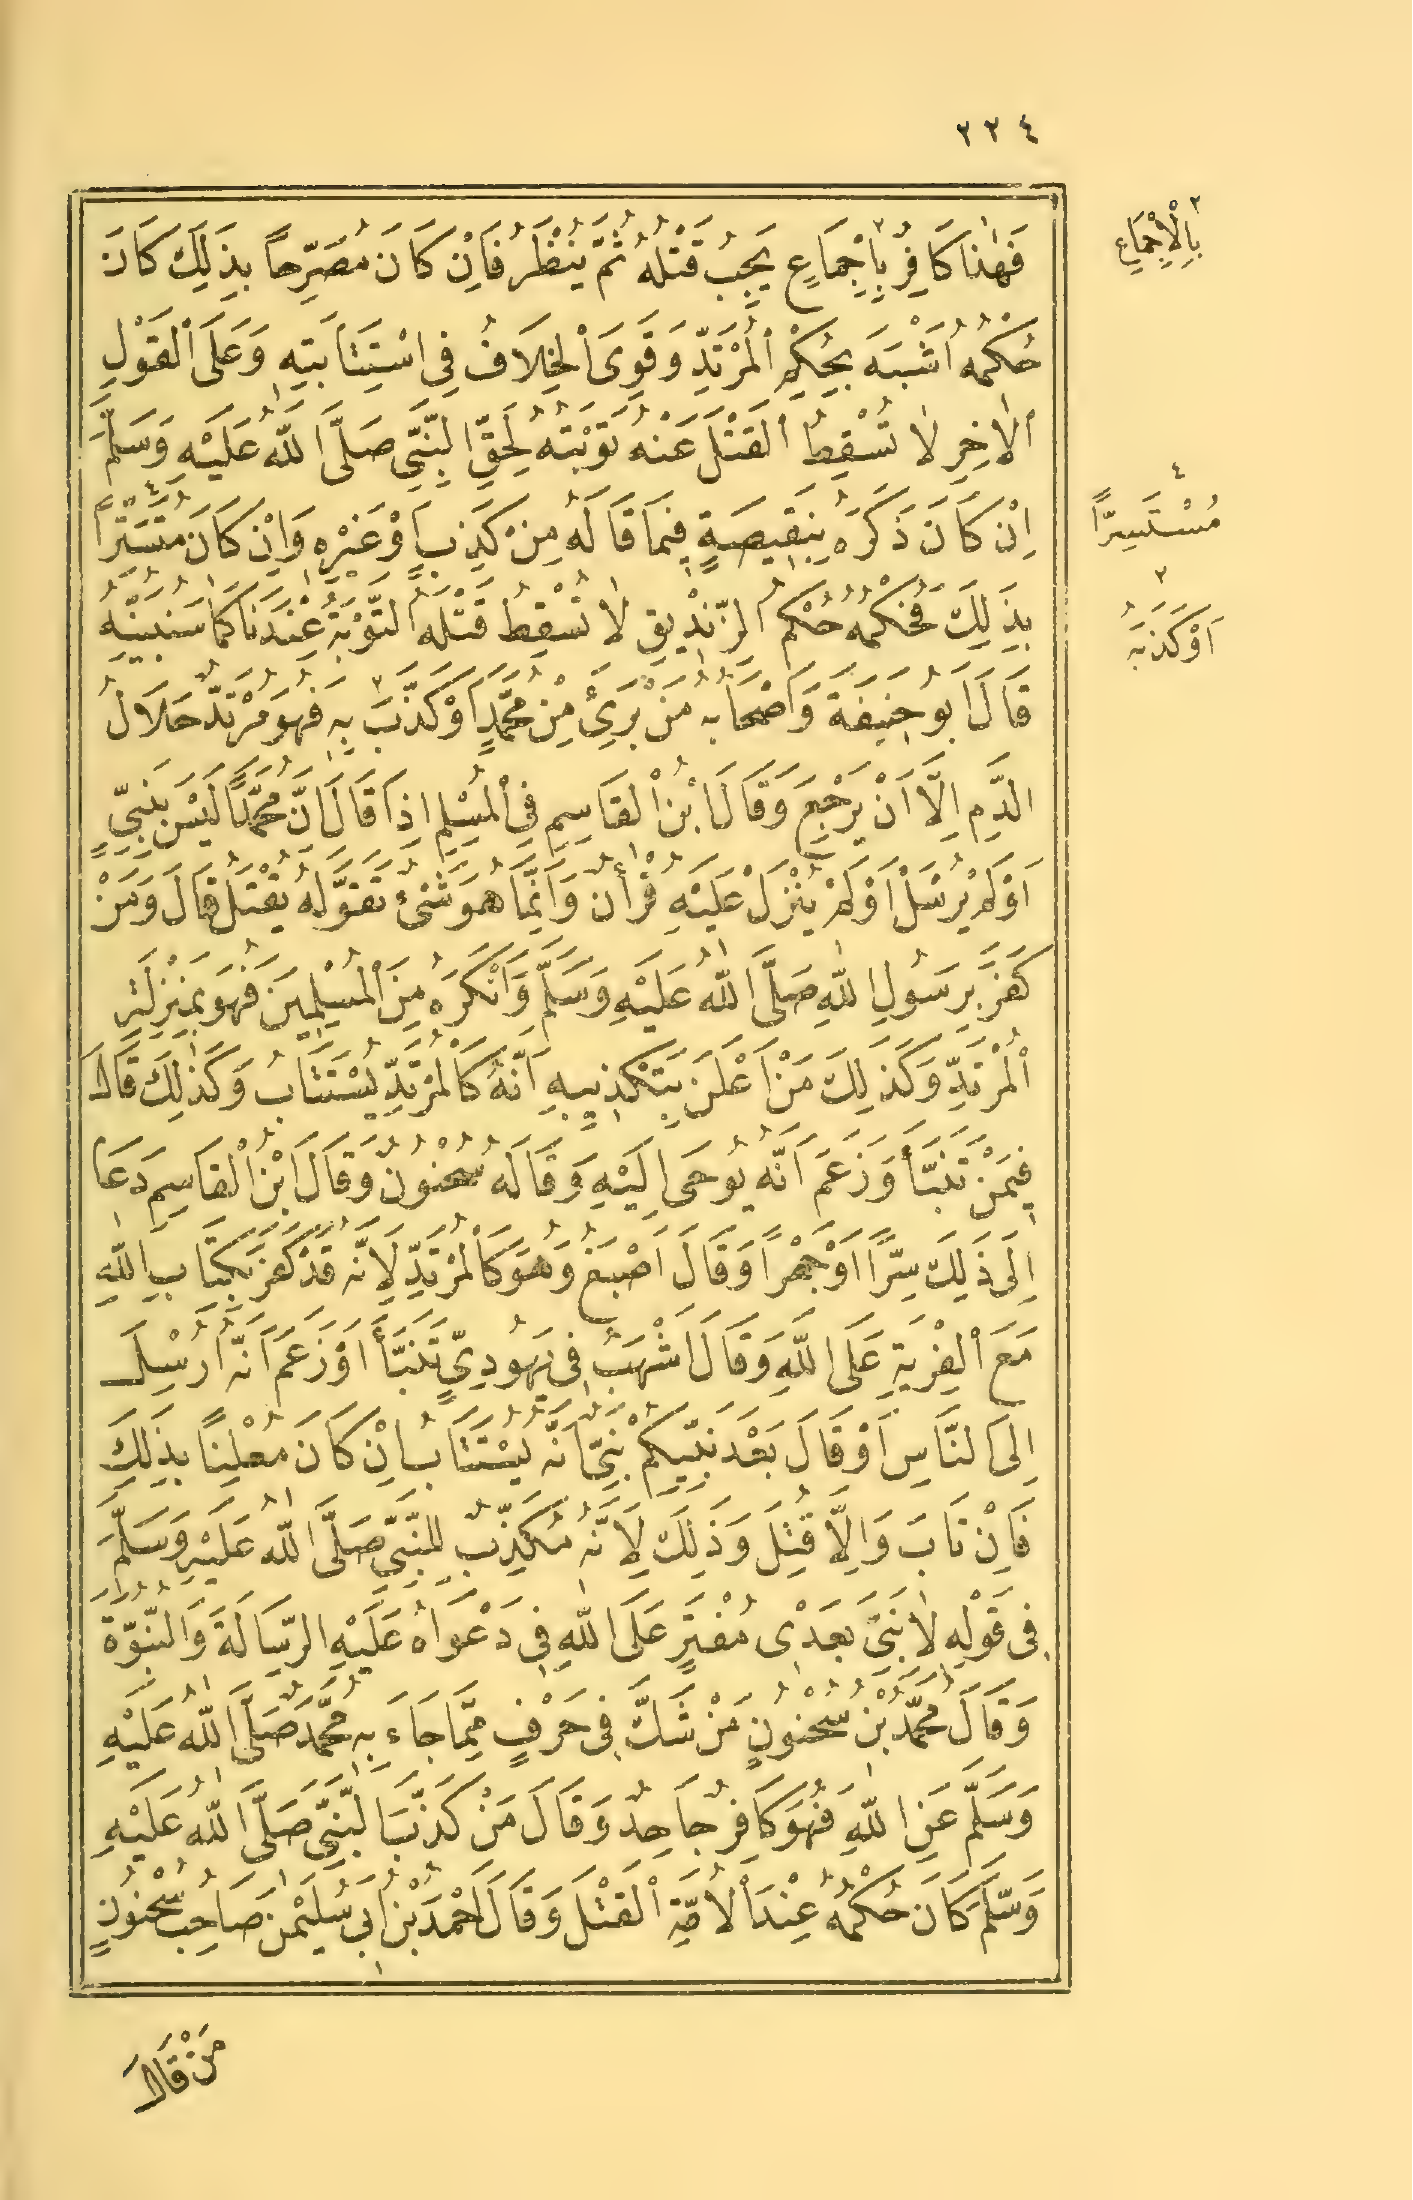 ٢٣٤
فَهٰذَا كَافِرٌ بِاِجْمَاعٍ يَجِبُ قَتْلُهُ ثُمَّ يُنْظَرُ فَاِنْ كَانَ مُصَرِّحاً بِذٰلِكَ كَانَ
حُكْمُهُ اَشْبَهَ بِحُكْمِ الْمُرْتَدِّ وَقَوِىَ الْخِلَافُ فِى اسْتِتَابَتِهِ وَعَلَى الْقَوْلِ
الْاٰخِرِ لَا تُسْقِطُ الْقَتْلَ عَنْهُ تَوْبَتُهُ لِحَقِّ النَّبِىِّ صَلَّى اللّٰهُ عَلَيْهِ وَسَلَّمَ
اِنْ كَانَ ذَكَرَهُ بِنَقِيصَةٍ فِيمَا قَالَهُ مِنْ كَذِبٍ اَوْ غَيْرِهِ وَاِنْ كَانَ مُتَسَتِّراً
بِذٰلِكَ فَحُكْمُهُ حُكْمُ الزِّنْدِيقِ لَا تُسْقِطُ قَتْلَهُ التَّوْبَةُ عِنْدَنَا كَمَا سَنُبَيِّنُهُ
قَالَ اَبُو حَنِيفَةَ وَاَصْحَابُهُ مَنْ بَرِئَ مِنْ مُحَمَّدٍ اَوْ كَذَّبَ بِهِ فَهُوَ مُرْتَدٌّ حَلَالُ
الدَّمِ اِلَّا اَنْ يَرْجِعَ وَقَالَ ابْنُ الْقَاسِمِ فِى الْمُسْلِمِ اِذَا قَالَ اِنَّ مُحَمَّدًا لَيْسَ بِنَبِىٍّ
اَوْ لَمْ يُرْسَلْ اَوْ لَمْ يُنْزَلْ عَلَيْهِ قُرْاٰنٌ وَاِنَّمَا هُوَ شَىْءٌ تَقَوَّلَهُ يُقْتَلُ قَالَ وَمَنْ
كَفَرَ بِرَسُولِ اللّٰهِ صَلَّى اللّٰهُ عَلَيْهِ وَسَلَّمَ وَاَنْكَرَهُ مِنَ الْمُسْلِمِينَ فَهُوَ بِمَنْزِلَةِ
الْمُرْتَدِّ وَكَذٰلِكَ مَنْ اَعْلَنَ بِتَكْذِيبِهِ اَنَّهُ كَالْمُرْتَدِّ يُسْتَتَابُ وَكَذٰلِكَ قَالَ
فِيمَنْ تَنَبَّأَ وَزَعَمَ اَنَّهُ يُوحَى اِلَيْهِ وَقَالَهُ سُحْنُونٌ وَقَالَ ابْنُ الْقَاسِمِ دَعَا
اِلَى ذٰلِكَ سِرًّا اَوْ جَهْراً وَقَالَ اَصْبَغُ وَهُوَ كَالْمُرْتَدِّ لِاَنَّهُ قَدْ كَفَرَ بِكِتَابِ اللّٰهِ
مَعَ الْفِرْيَةِ عَلَى اللّٰهِ وَقَالَ اَشْهَبُ فِى يَهُودِىٍّ تَنَبَّأَ اَوْ زَعَمَ اَنَّهُ اُرْسِلَ
اِلَى النَّاسِ اَوْ قَالَ بَعْدَ نَبِيِّكُمْ نَبِىٌّ اَنَّهُ يُسْتَتَابُ اِنْ كَانَ مُعْلِنًا بِذٰلِكَ
فَاِنْ تَابَ وَاِلَّا قُتِلَ وَذٰلِكَ لِاَنَّهُ مُكَذِّبٌ لِلنَّبِىِّ صَلَّى اللّٰهُ عَلَيْهِ وَسَلَّمَ
فِى قَوْلِهِ لَا نَبِىَّ بَعْدِى مُفْتَرٍ عَلَى اللّٰهِ فِى دَعْوَاهُ عَلَيْهِ الرِّسَالَةَ وَالنُّبُوَّةَ
وَقَالَ مُحَمَّدُ بْنُ سُحْنُونٍ مَنْ شَكَّ فِى حَرْفٍ مِمَّا جَاءَ بِهِ مُحَمَّدٌ صَلَّى اللّٰهُ عَلَيْهِ
وَسَلَّمَ عَنِ اللّٰهِ فَهُوَ كَافِرٌ جَاحِدٌ وَقَالَ مَنْ كَذَّبَ النَّبِىَّ صَلَّى اللّٰهُ عَلَيْهِ
وَسَلَّمَ كَانَ حُكْمُهُ عِنْدَ الْاُمَّةِ الْقَتْلَ وَقَالَ اَحْمَدُ بْنُ اَبِى سُلَيْمٰنَ صَاحِبُ سُحْنُونٍ
مَنْ قَالَ
٢
بِالْاِجْمَاعِ
٤
مُسْتَسِرًّا
٢
اَوْ كَذَّبَهُ